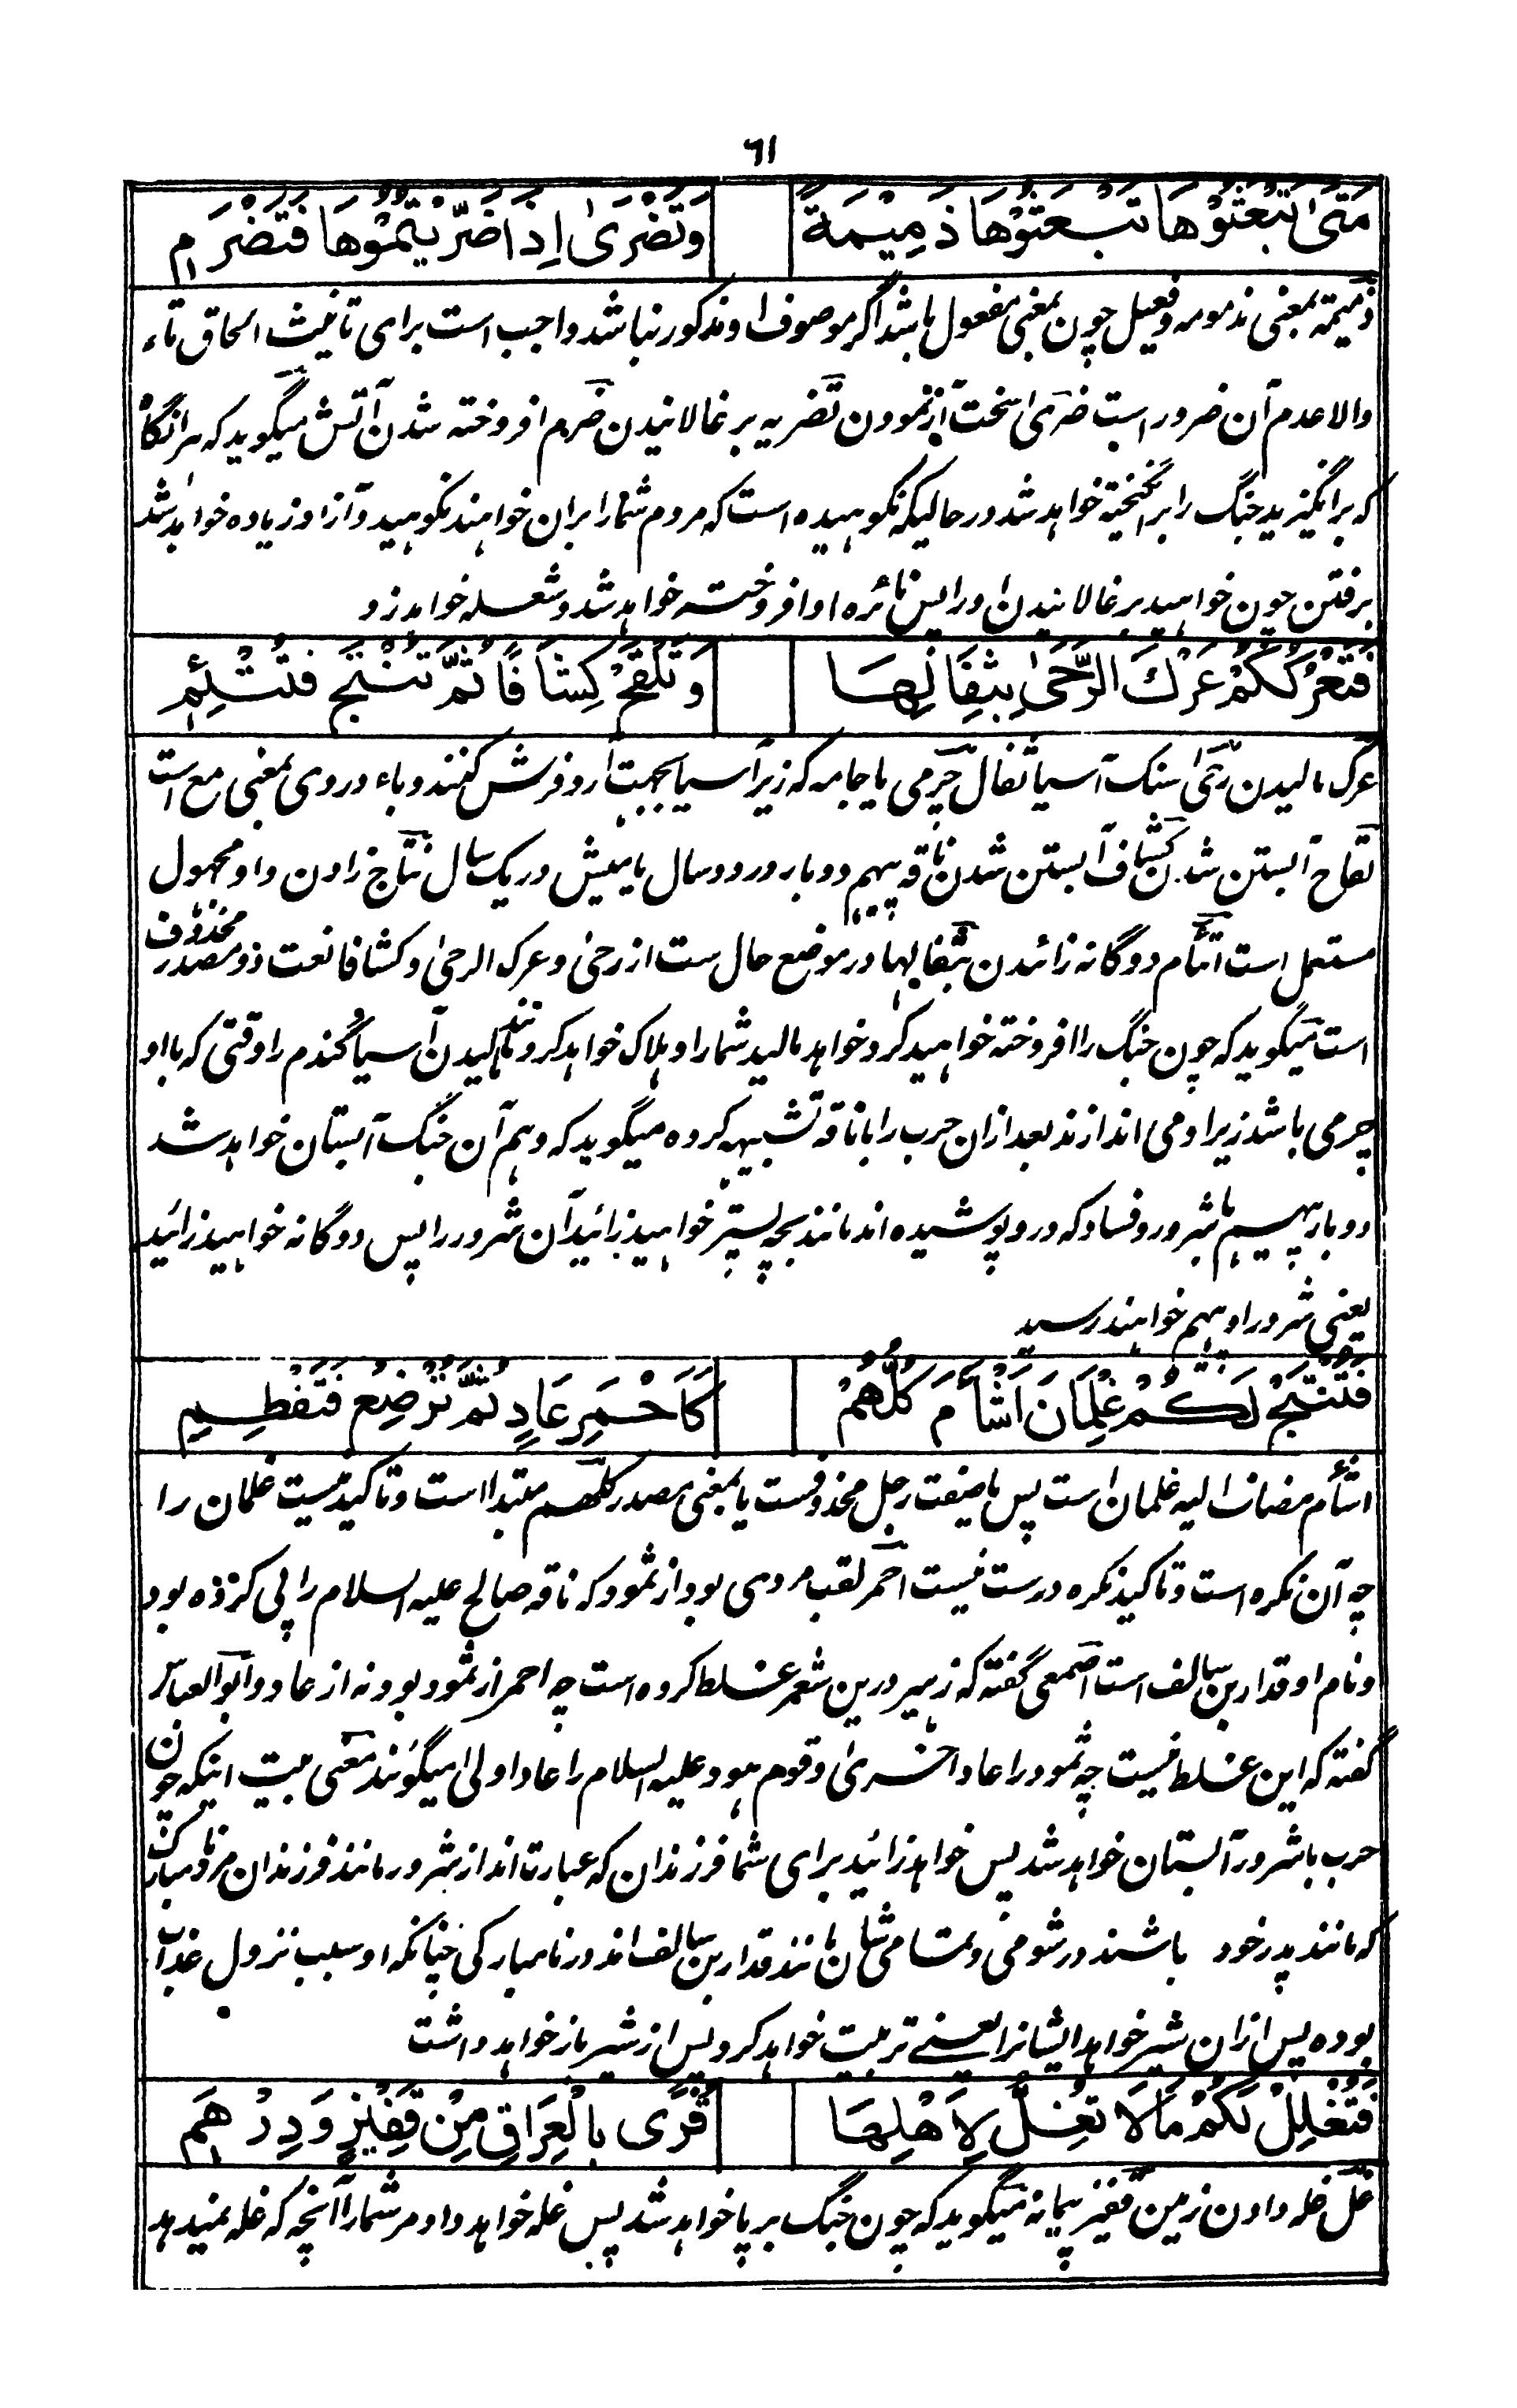 ٦١
مَتَىٰ تَبْعَثُوْهَا تَبْعَثُوْهَا ذَمِيْمَةً وَتَضْرَىٰ اِذَا ضَرَّيْتُمُوْهَا فَتَضْرَمِ
ذمیمة بمعنی مذمومه وفعیل چون بمعنی مفعول باشد اگر موصوف او مذکور نباشد واجب است برای تانیث الحاق تاء
والا عدم آن ضرور است ضرَیٰ سخت آزمودن تضریه بر غالانیدن ضرم افروخته شدن آتش میگوید که هر انگاه
که برانگیزید جنگ را برانگیخته خواهد شد در حالیکه نکوهیده است که مردم شما را بران خواهند نکوهید و آز او زیاده خواهد شد
برفتن چون خواهید بر غالانیدن او را پس نائره او افروخته خواهد شد و شعله خواهد زد
فَتَعْرُكُكُمْ عَرْكَ الرَّحَىٰ بِثِفَالِهَا وَتَلْقَحْ كِشَافًا ثُمَّ تُنْتَجْ فَتُتْئِمِ
عرک مالیدن رحیٰ سنک آسیا ثفال چرمی یا جامه که زیر آسیا بجهت آرد فرش کنند وباء در وی بمعنی مع است
لقاح آبستن شدن کشاف آبستن شدن ناقه پیهم دو بار در دو سال یا میش در یک سال نتاج زادن واو مجهول
مستعمل است اتئام دوگانه زائیدن بثفالها در موضع حال ست از رحیٰ و عرک الرحیٰ و کشافا نعت ذو مصدر محذوف
است میگوید که چون جنگ را افروخته خواهید کرد خواهد مالید شما را و هلاک خواهد کرد مانند مالیدن آسیا گندم را وقتی که با او
چرمی باشد زیر او می اندازند بعد ازان حرب را با ناقه تشبیهه کرده میگوید که وهم آن جنگ آبستان خواهد شد
دو بار پیهم بشرور و فساد که در و پوشیده اند مانند بچه پستر خواهید زائید آن شرور را پس دوگانه خواهید زائید
یعنی شرور او پیهم خواهند رسید
فَتُنْتِجْ لَكُمْ غِلْمَانَ اَشْأَمَ كُلُّهُمْ كَاَحْمَرِ عَادٍ ثُمَّ تُرْضِعْ فَتَفْطِمِ
اشأم مضاف الیه غلمان است پس یا صفت رجل محذوفست یا بمعنی مصدر کلهم مبتدا است وتاکید نیست غلمان را
چه آن نکره است وتاکید نکره درست نیست احمر لقب مردی بود از ثمود که ناقه صالح علیه السلام را پی کرده بود
ونام او قدار بن سالف است اصمعی گفته که زهیر درین شعر غلط کرده است چه احمر از ثمود بود نه از عاد وابو العباس
گفته که این غلط نیست چه ثمود را عاد اخریٰ وقوم هود علیه السلام را عاد اولیٰ میگویند معنی بیت اینکه چون
حرب با شرور آبستان خواهد شد پس خواهد زائید برای شما فرزندان که عبارت اند از شرور مانند فرزندان مرد نامبارک
که مانند پدر خود باشند در شومی وتمامی شان مانند قدار بن سالف اند در نامبارکی چنانکه او سبب نزول عذاب
بوده پس ازان شیر خواهد ایشانرا یعنے تربیت خواهد کرد پس از شیر باز خواهد داشت
فَتُغْلِلْ لَكُمْ مَا لَا تُغِلُّ لِاَهْلِهَا قُرًى بِالْعِرَاقِ مِنْ قَفِيْزٍ وَدِرْهَمِ
غل غله دادن زمین قفیز پیمانه میگوید که چون جنگ بر پا خواهد شد پس غله خواهد داد مر شما را آنچه که غله نمیدهد